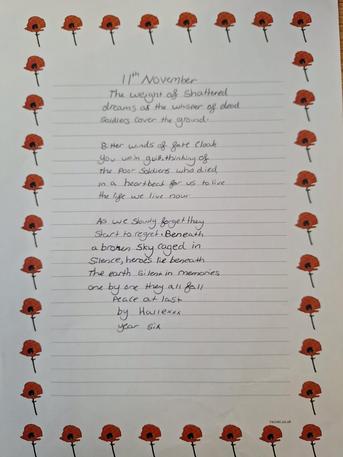 11th November
The weight of Shattered
dreams as the whisper of dead
Soldiers cover the ground.
Bitter winds of fate Cloak
you in guilt, thinking of
the Poor Soldiers who died
in a heartbeat for us to live
the life we live now
As we Slowly forget they
Start to regret. Beneath
a broken Sky caged in
Silence, heroes lie beneath
The earth Silent in memories
one by one they all fall
Peace at last
by Hallexxx
year Six